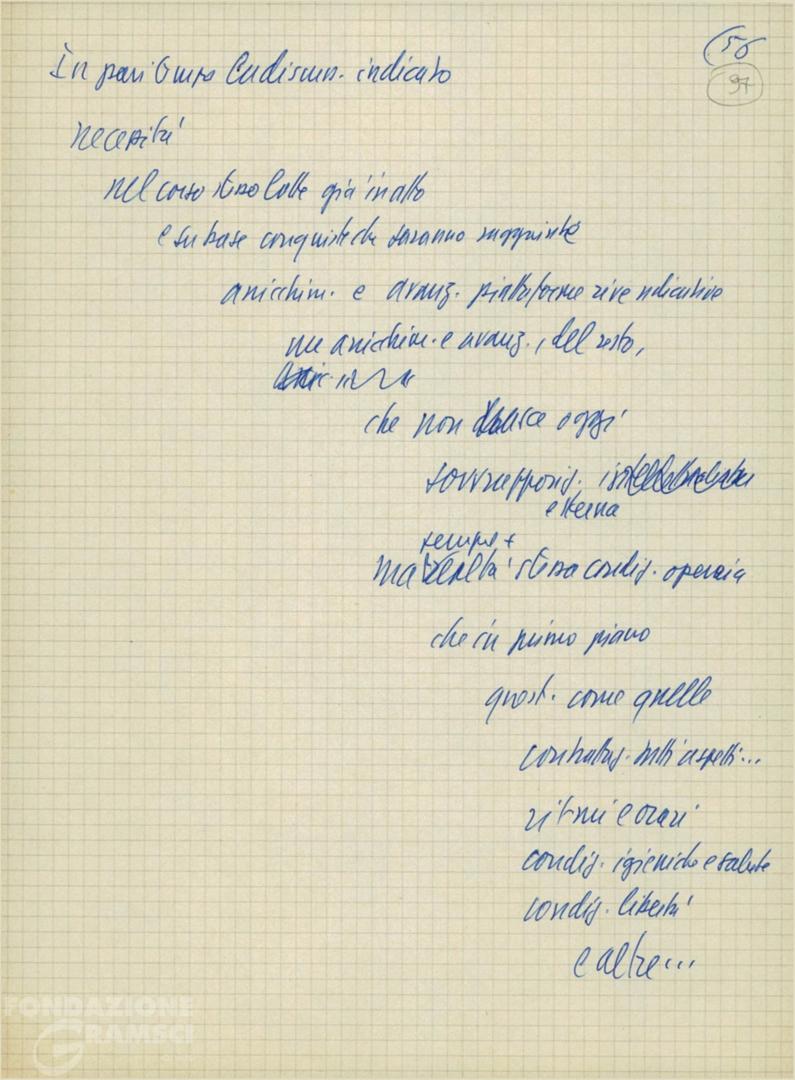 (56
97
In pari tempo la discuss. indicato
necessità
nel corso stesso lotte già in atto
e su base conquiste che saranno raggiunte
arricchim. e avanz. piattaforme rivendicative
un arricchim. e avanz., del resto,
che non nasce oggi
sovrapposiz.
esterna
sempre +
ma realtà stessa condiz. operaia
che in primo piano
quest. come quelle
contrattaz. tutti aspetti...
ritmi e orari
condiz. igieniche e salute
condiz. libertà
e altre...
FONDAZIONE
GRAMSCI